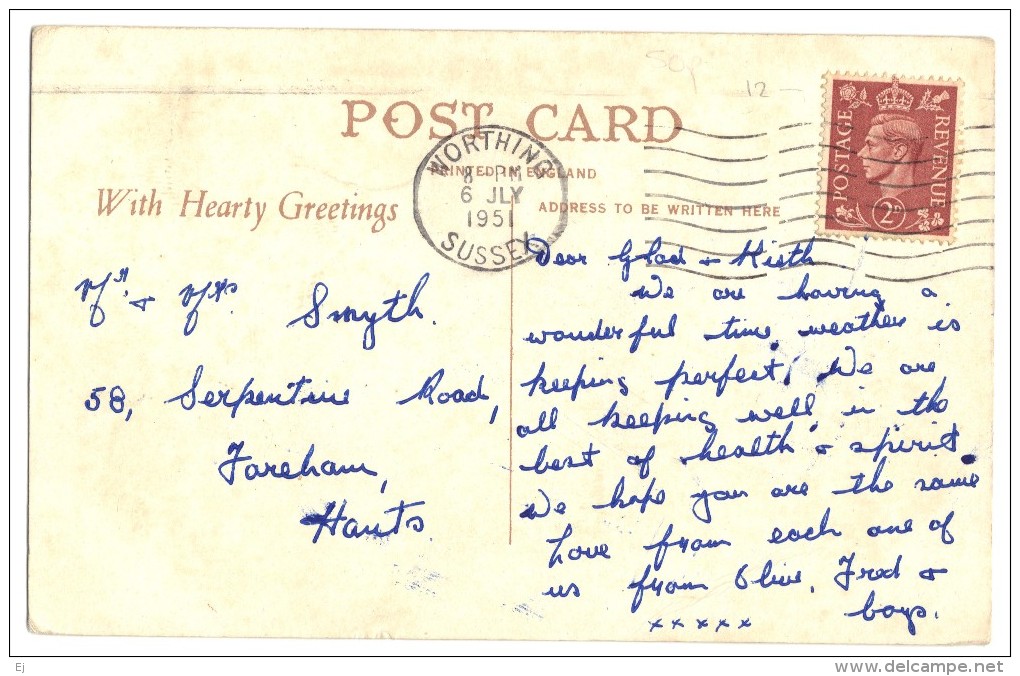 50p
12 -
POST CARD
PRINTED IN ENGLAND
With Hearty Greetings
ADDRESS TO BE WRITTEN HERE
WORTHING
8 PM
6 JLY
1951
SUSSEX
POSTAGE
REVENUE
2D
Mr. & Mrs. Smyth.
58, Serpentine Road,
Fareham,
Hants.
Dear Glad &
We are having a
wonderful time, weather is
keeping perfect. We are
all keeping well, in the
best of health & spirit.
We hope you are the same
Love from each one of
us from Olive, Fred &
boys.
x x x x x
Ej
www.delcampe.net